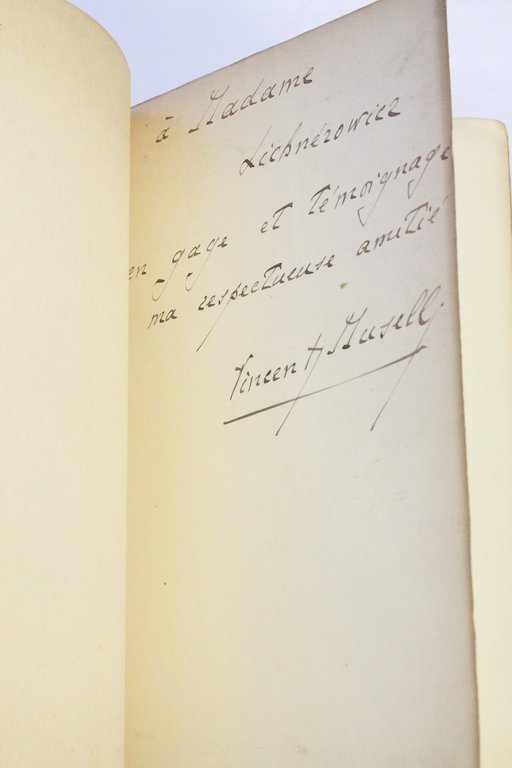 à Madame
Lichnérowicz
en gage et témoignage
ma respectueuse amitié
Vincent Muselli